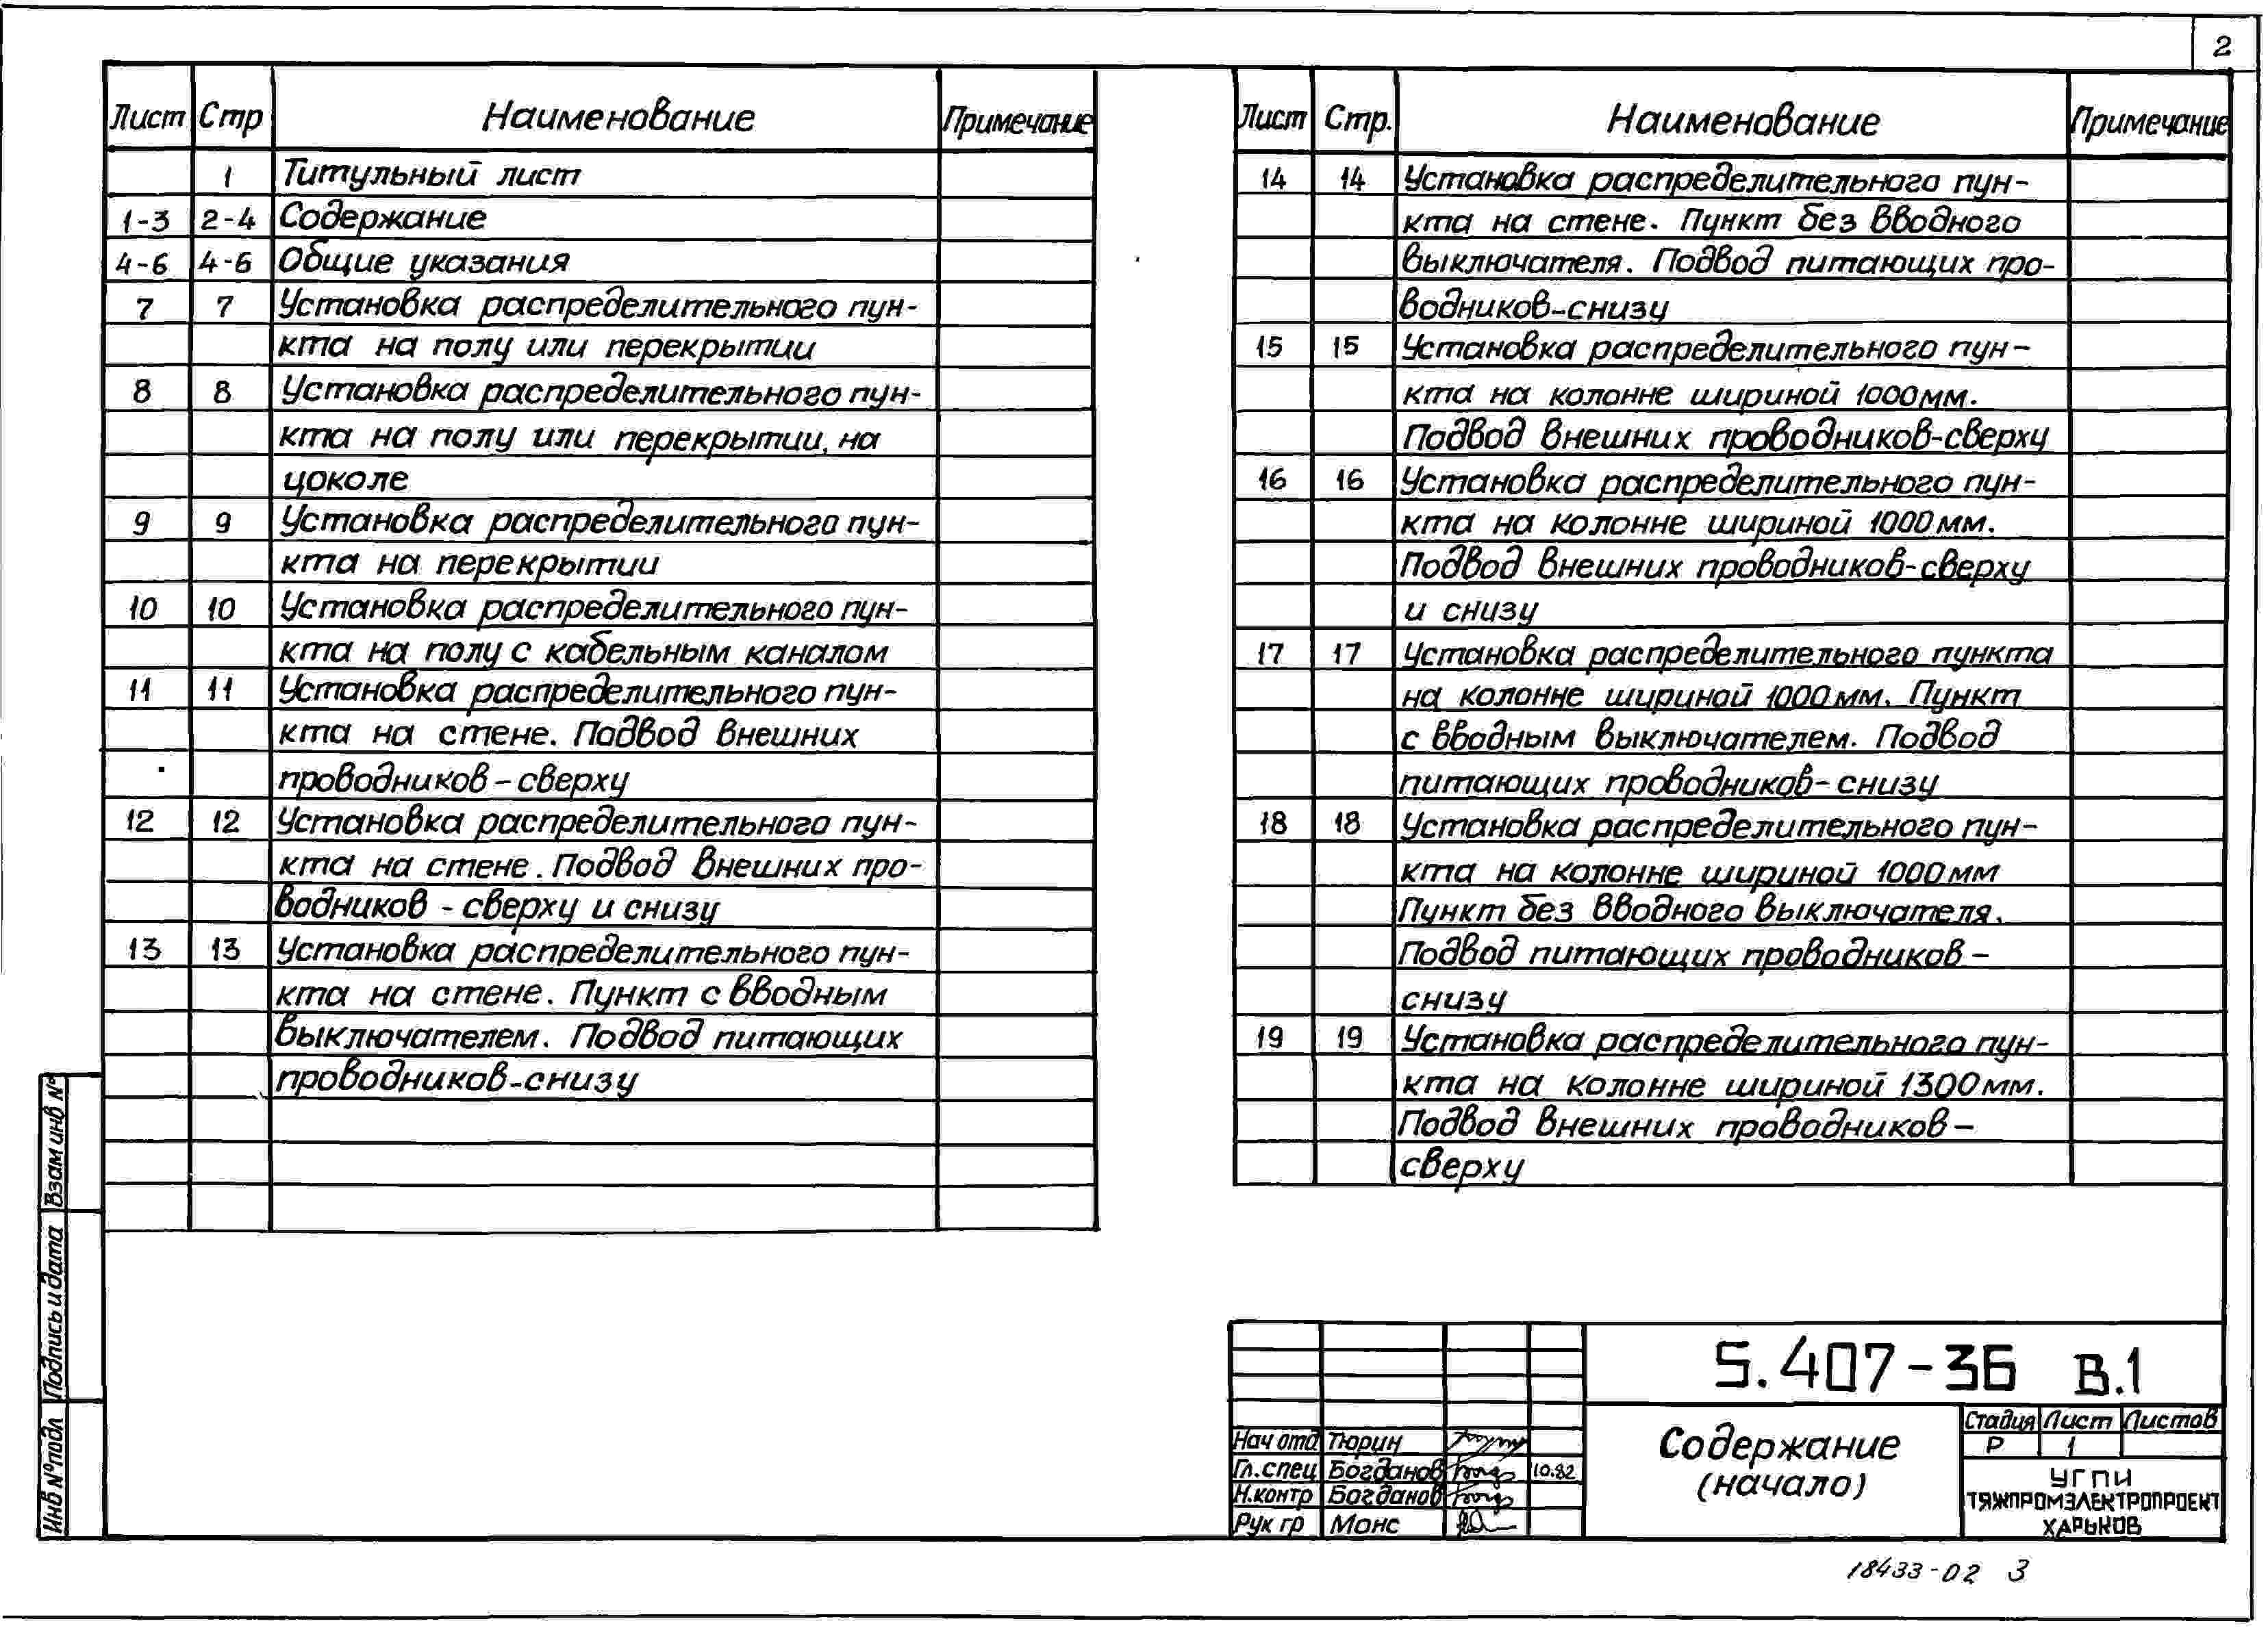 2
Лист Стр Наименование Примечание
1 Титульный лист
1-3 2-4 Содержание
4-6 4-6 Общие указания
7 7 Установка распределительного пун-
кта на полу или перекрытии
8 8 Установка распределительного пун-
кта на полу или перекрытии, на
цоколе
9 9 Установка распределительного пун-
кта на перекрытии
10 10 Установка распределительного пун-
кта на полу с кабельным каналом
11 11 Установка распределительного пун-
кта на стене. Подвод внешних
проводников - сверху
12 12 Установка распределительного пун-
кта на стене. Подвод внешних про-
водников - сверху и снизу
13 13 Установка распределительного пун-
кта на стене. Пункт с вводным
выключателем. Подвод питающих
проводников-снизу
Лист Стр. Наименование Примечание
14 14 Установка распределительного пун-
кта на стене. Пункт без вводного
выключателя. Подвод питающих про-
водников-снизу
15 15 Установка распределительного пун-
кта на колонне шириной 1000мм.
Подвод внешних проводников-сверху
16 16 Установка распределительного пун-
кта на колонне шириной 1000мм.
Подвод внешних проводников-сверху
и снизу
17 17 Установка распределительного пункта
на колонне шириной 1000мм. Пункт
с вводным выключателем. Подвод
питающих проводников-снизу
18 18 Установка распределительного пун-
кта на колонне шириной 1000мм
Пункт без вводного выключателя.
Подвод питающих проводников-
снизу
19 19 Установка распределительного пун-
кта на колонне шириной 1300мм.
Подвод внешних проводников-
сверху
Взам инв №
Подпись и дата
Инв № подл
5.407-36 В.1
Нач отд Тюрин
Гл.спец Богданов 10.82
Н.контр Богданов
Рук гр Монс
Содержание
(начало)
Стадия Лист Листов
Р 1
УГПИ
ТЯЖПРОМЭЛЕКТРОПРОЕКТ
ХАРЬКОВ
18433-02 3